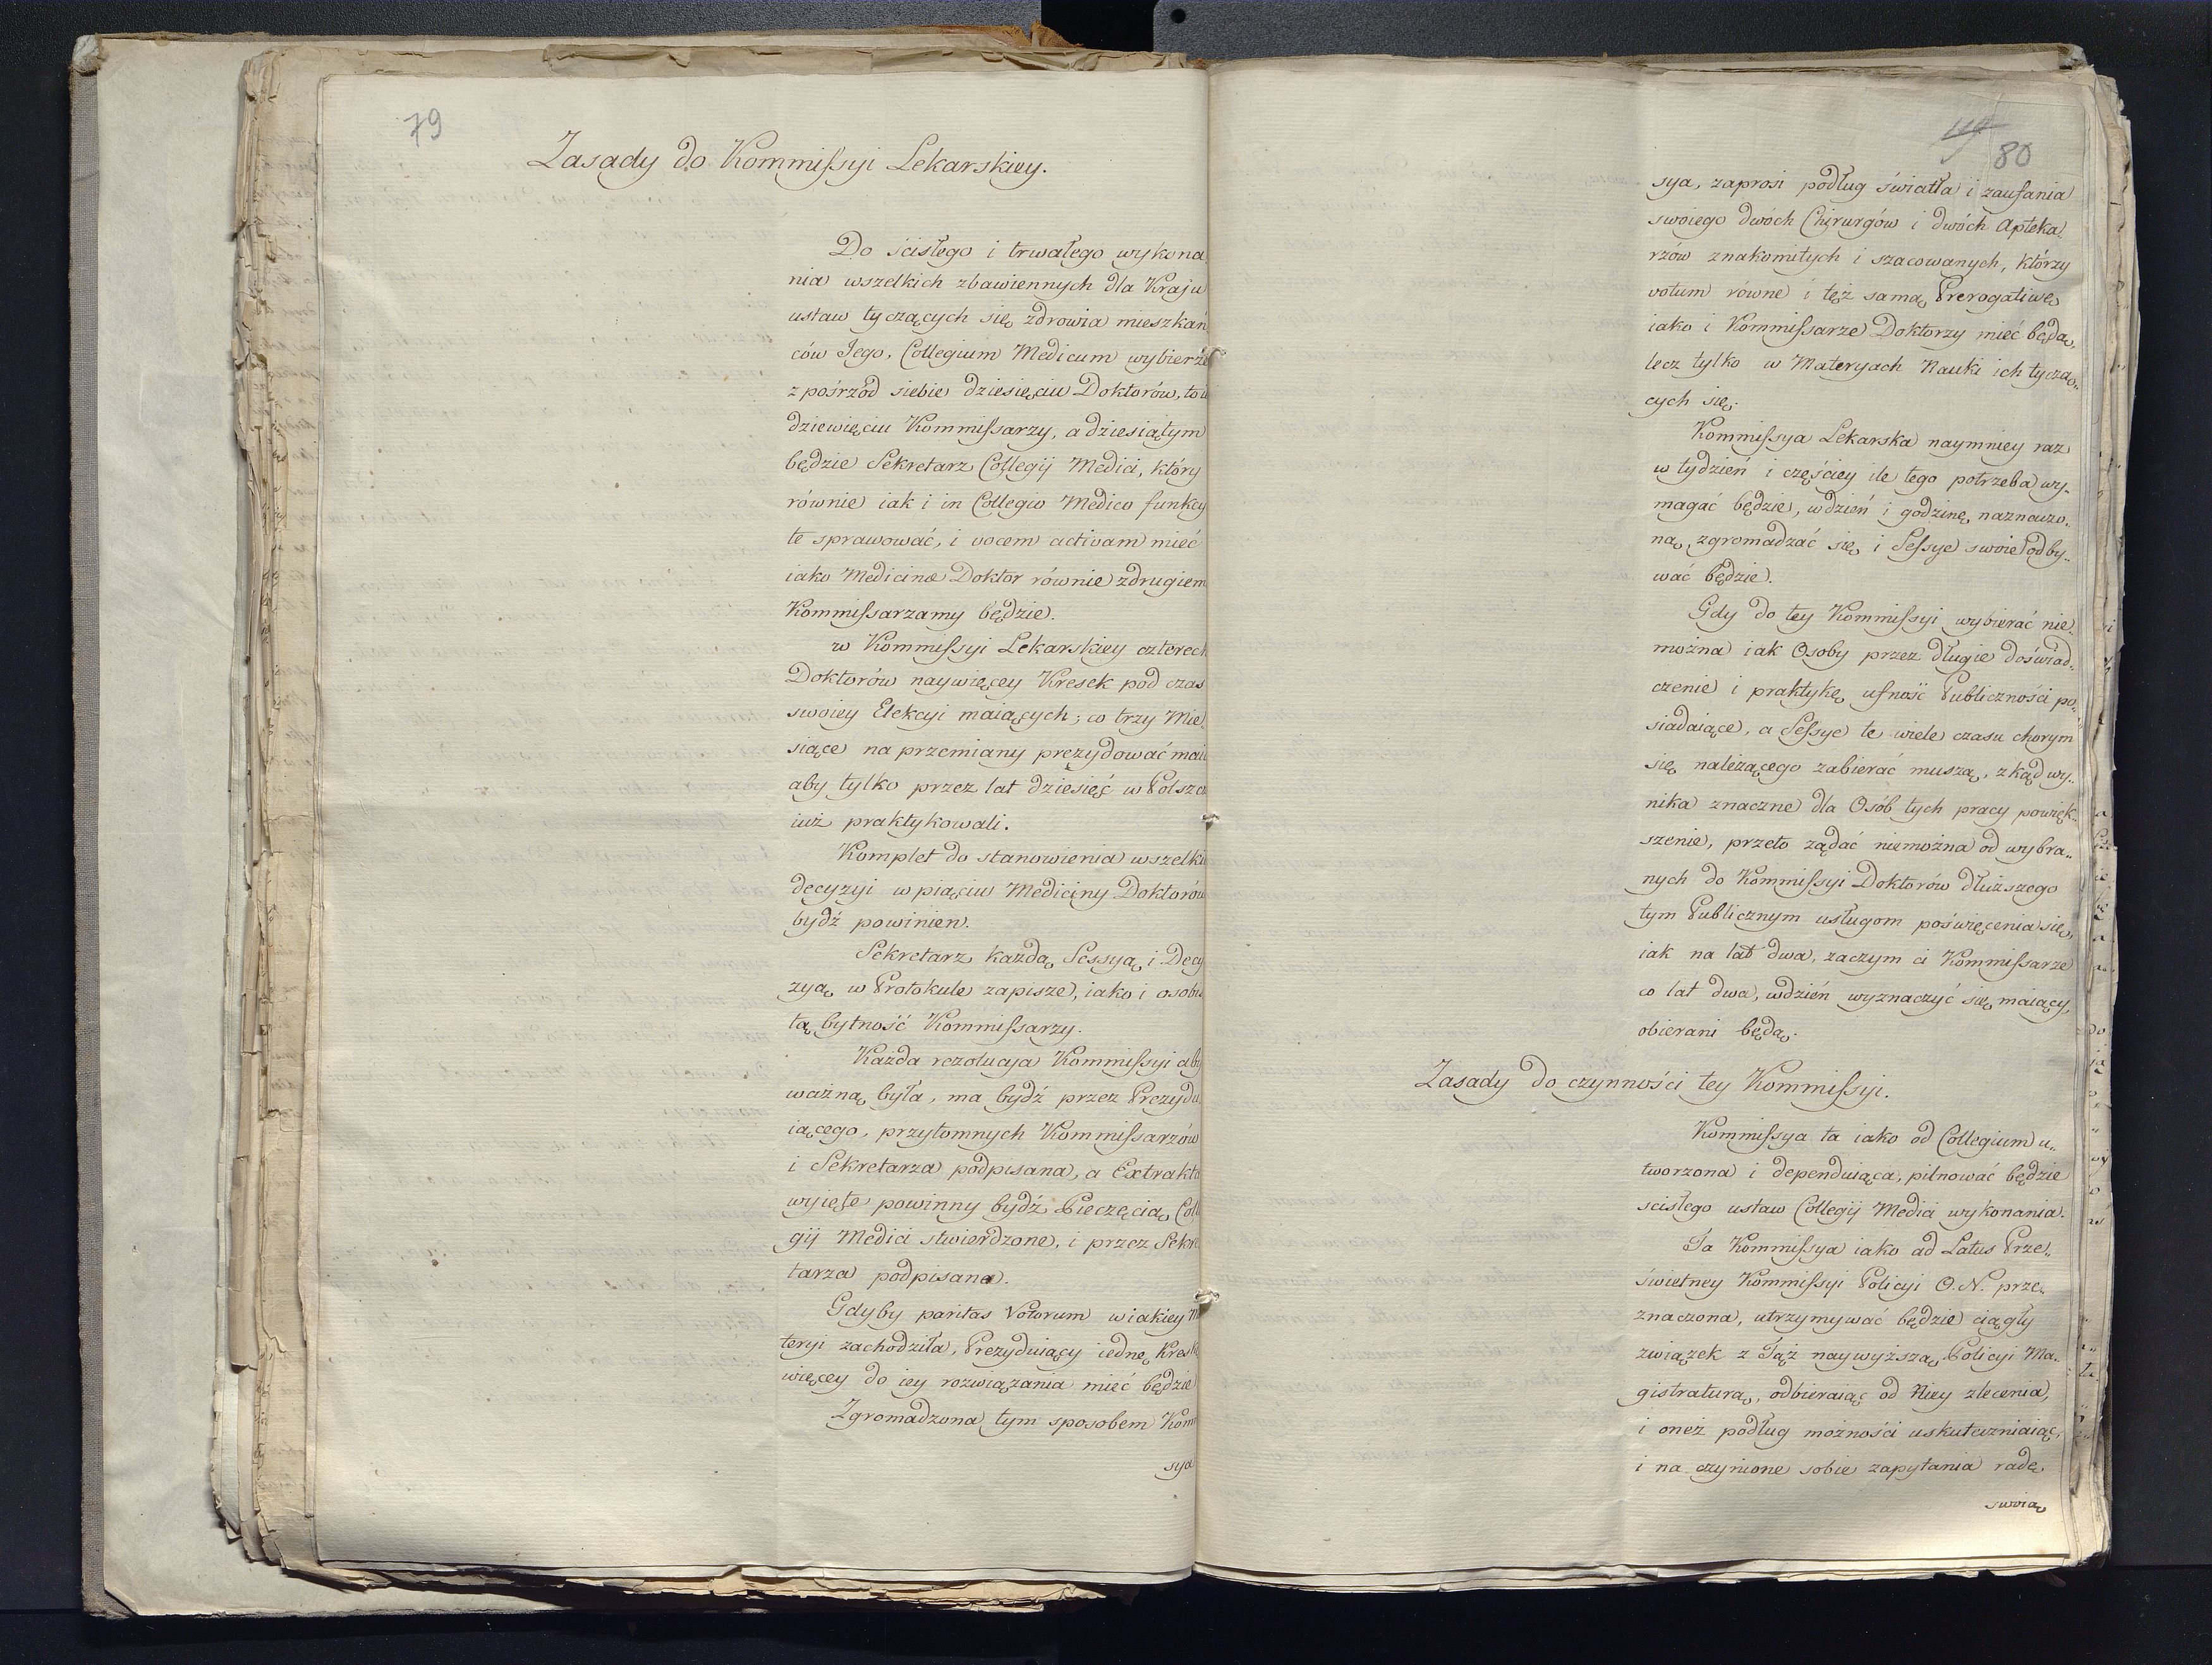 79
Zasady do Kommissyi Lekarskiey.
Do ścisłego i trwałego wykona
nia wszelkich zbawiennych dla Kraju
ustaw tyczących się zdrowia mieszkań
ców Jego, Collegium Medicum wybierze
z pośrzód siebie dziesięciu Doktorów, to i
dziewięciu Kommissarzy, a dziesiątym
będzie Sekretarz Collegij Medici, który
równie iak i in Collegio Medico funkcy
te sprawować, i vocem activam mieć
iako Medicinæ Doktor równie zdrugiem
Kommissarzamy będzie.
w Kommissyi Lekarskiey czterech
Doktorów naywięcey Kresek pod czas
swoiey Elekcyi maiących; co trzy Mie
siące na przemiany prezydować maią
aby tylko przez lat dziesięć w Polszcz
iuż praktykowali.
Komplet do stanowienia wszelki
decyzyi w piąciu Mediciny Doktorów
bydź powinien.
Sekretarz każdą Sessyą i Decy
zyą w Protokule zapisze, iako i osobi
tą bytność Kommissarzy.
Każda rezolucya Kommissyi aby
ważną była, ma bydź przez Prezydu
iącego, przytomnych Kommissarzów
i Sekretarza podpisana, a Extrakta
wyięte powinny bydź Pieczęcią Coll
gij Medici stwierdzone, i przez Sekre
tarza podpisane.
Gdyby paritas Votorum w iakiey M
teryi zachodziła, Prezyduiący iednę Kresk
więcey do iey rozwiązania mieć będzie
Zgromadzona tym sposobem Kom
sya
80
sya, zaprosi podług światła i zaufania
swoiego dwóch Chirurgów i dwóch Apteka
rzów znakomitych i szacowanych, którzy
votum równe i tęż samą Prerogatiwę
iako i Kommissarze Doktorzy mieć będą,
lecz tylko w Materyach Nauki ich tyczą„
cych się.
Kommissya Lekarska naymniey raz
w tydzień i częściey ile tego potrzeba wy„
magać będzie, w dzień i godzinę naznaczo„
ną, zgromadzać się i Sessye swoie odby„
wać będzie.
Gdy do tey Kommissyi wybierać nie
można iak Osoby przez długie doświad„
czenie i praktykę ufność Publiczności po„
siadaiące, a Sessye te wiele czasu chorym
się należącego zabierać muszą, zkąd wy„
nika znaczne dla Osób tych pracy powięk„
szenie, przeto żądać niemożna od wybra„
nych do Kommissyi Doktorów dłuższego
tym Publicznym usługom poświęcenia się,
iak na lat dwa, zaczym ci Kommissarze
co lat dwa, w dzień wyznaczyć się maiący,
obierani będą.
Zasady do czynności tey Kommissyi.
Kommissya ta iako od Collegium u„
tworzona i dependuiąca, pilnować będzie
scisłego ustaw Collegij Medici wykonania.
Ta Kommissya iako ad Latus Prze„
świetney Kommissyi Policyi O.N. prze„
znaczona, utrzymywać będzie ciągły
związek z Tąż naywyższą Policyi Ma„
gistraturą, odbieraiąc od Niey zlecenia,
i oneż podług możności uskuteczniaiąc,
i na czynione sobie zapytania radę
swoią